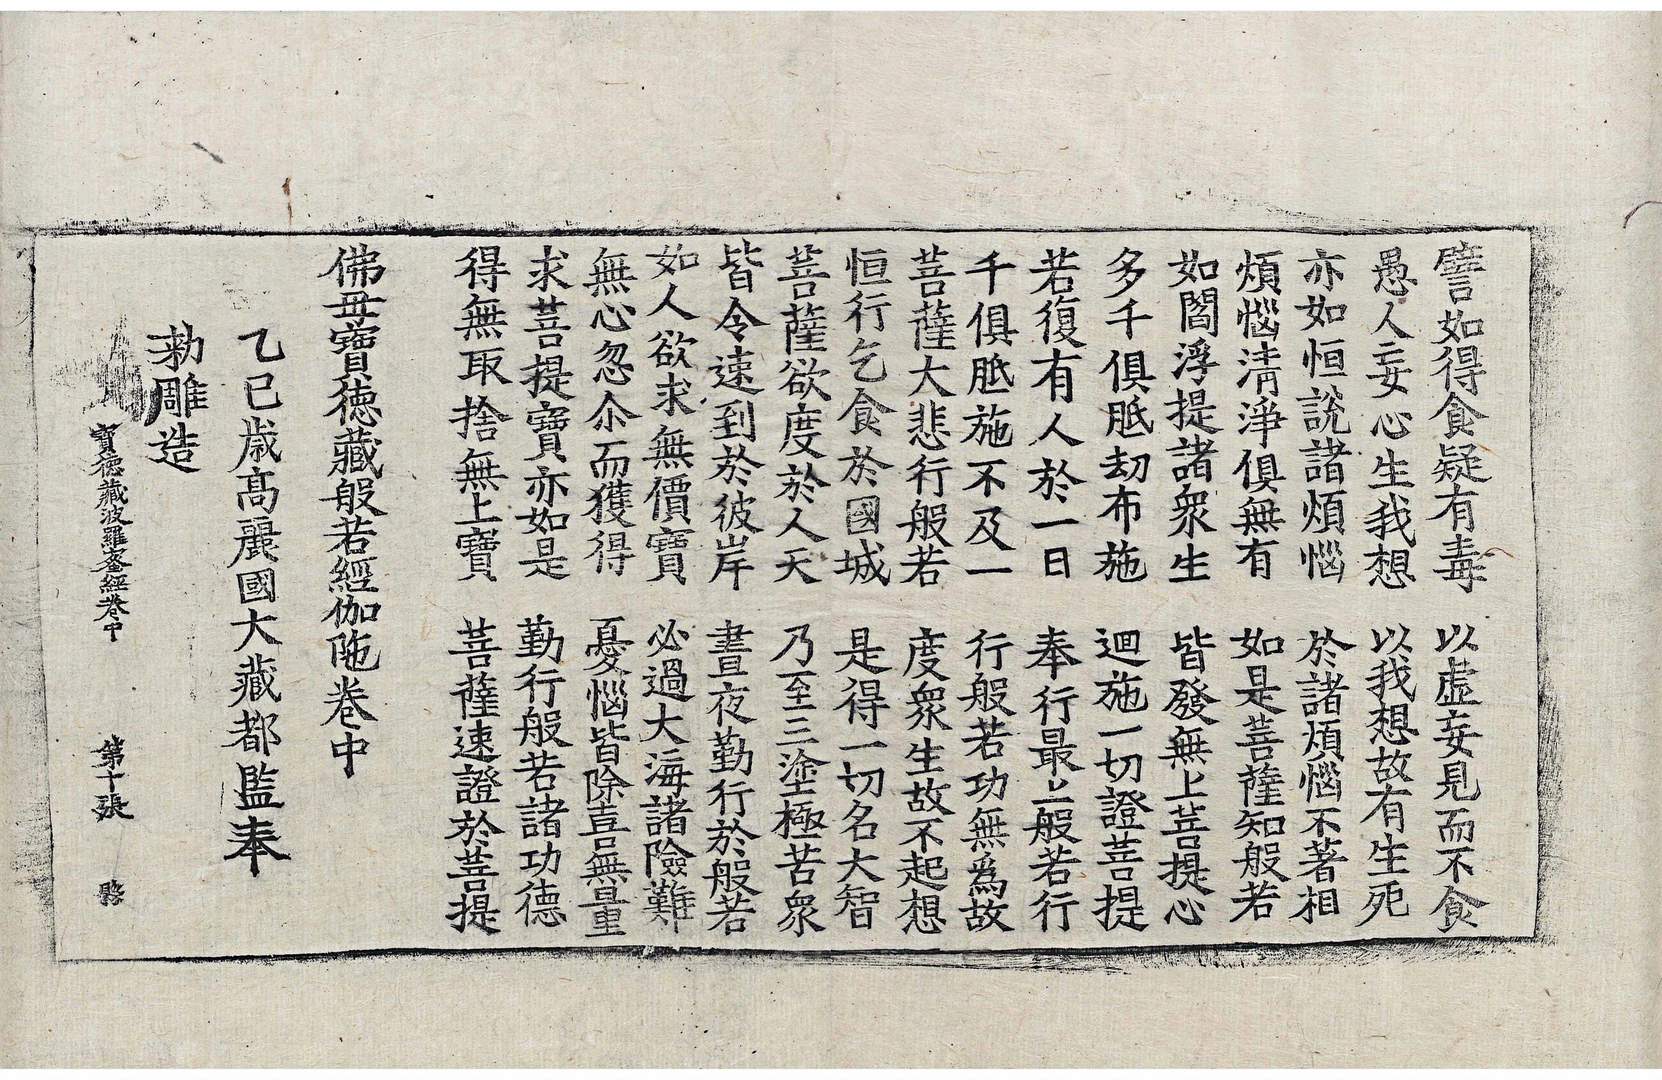 譬如得食疑有毒　以虛妄見而不食
愚人妄心生我想　以我想故有生死
亦如恒說諸煩惱　於諸煩惱不著相
煩惱淸淨俱無有　如是菩薩知般若
如閻浮提諸衆生　皆發無上菩提心
多千俱胝劫布施　迴施一切證菩提
若復有人於一日　奉行最上般若行
千俱胝施不及一　行般若功無爲故
菩薩大悲行般若　度衆生故不起想
恒行乞食於國城　是得一切名大智
菩薩欲度於人天　乃至三塗極苦衆
皆令速到於彼岸　晝夜勤行於般若
如人欲求無價寶　必過大海諸險難
無心忽尒而獲得　憂惱皆除喜無量
求菩提寶亦如是　勤行般若諸功德
得無取捨無上寶　菩薩速證於菩提
佛母寶德藏般若經伽陁卷中
乙巳歲高麗國大藏都監奉
勅雕造
寶德藏波羅蜜經卷中　第十張